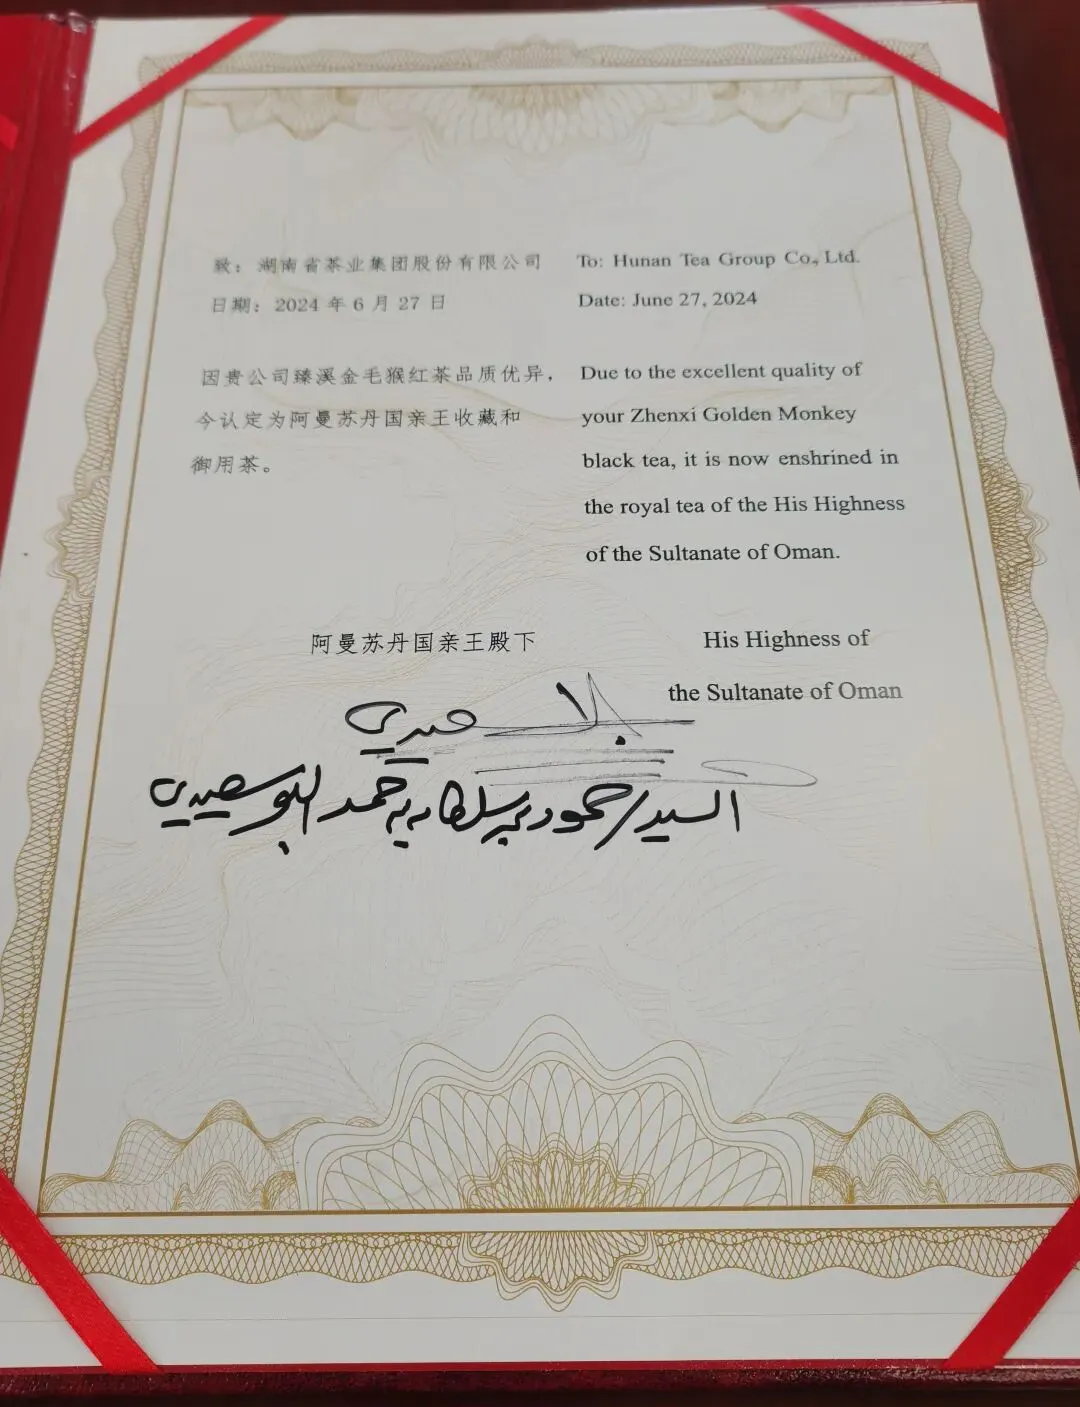 致：湖南省茶业集团股份有限公司
日期：2024 年 6 月 27 日
因贵公司臻溪金毛猴红茶品质优异，
今认定为阿曼苏丹国亲王收藏和
御用茶。
阿曼苏丹国亲王殿下
To: Hunan Tea Group Co., Ltd.
Date: June 27, 2024
Due to the excellent quality of
your Zhenxi Golden Monkey
black tea, it is now enshrined in
the royal tea of the His Highness
of the Sultanate of Oman.
His Highness of
the Sultanate of Oman
السيد حمود بن سلطان بن حمد البوسعيدي